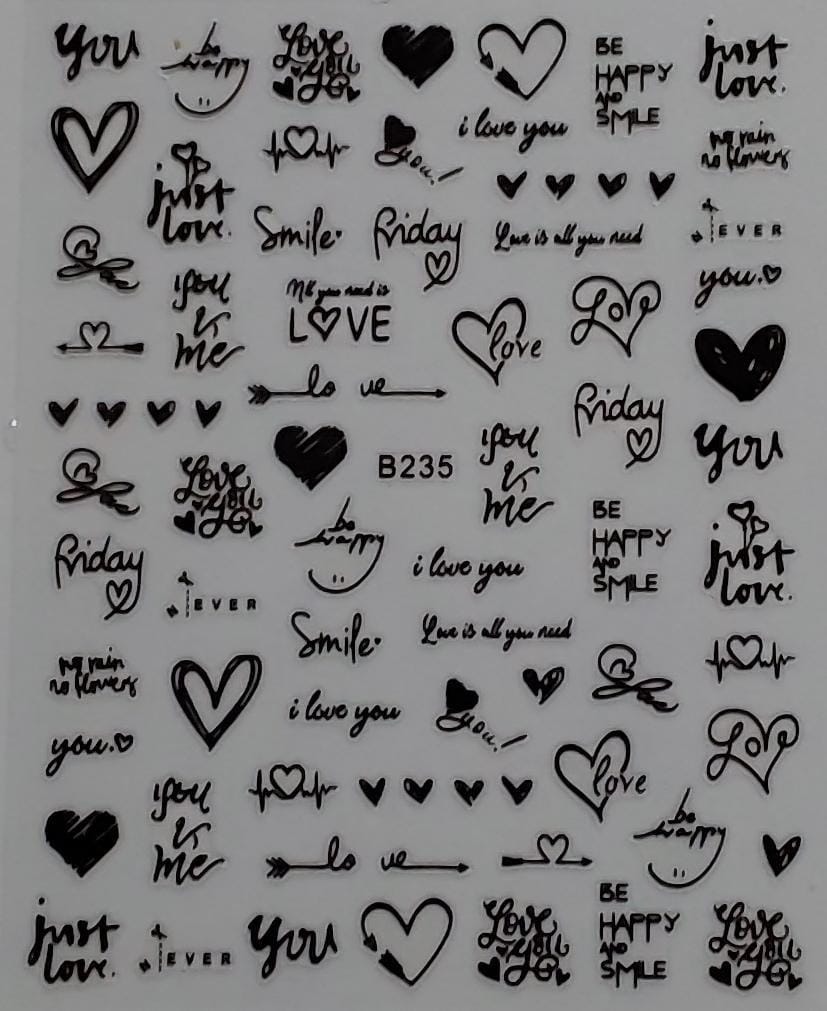 you
be
happy
Love
you
BE
HAPPY
AND
SMILE
just
love.
i love you
you!
no rain
no flowers
just
love.
Smile
friday
Love is all you need
EVER
you.
you
&
me
All you need is
LOVE
love
Love
lo ve
friday
you
B235
you
&
me
Love
you
be
happy
BE
HAPPY
AND
SMILE
just
love.
friday
i love you
EVER
Smile
Love is all you need
no rain
no flowers
i love you
you!
you.
Love
love
you
&
me
be
happy
lo ve
just
love.
EVER
you
Love
you
BE
HAPPY
AND
SMILE
Love
you